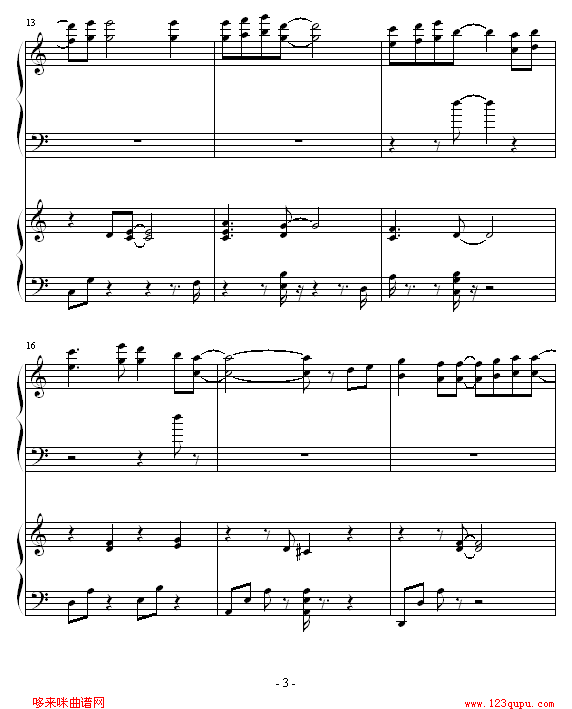 13
16
- 3 -
哆来咪曲谱网
www.123qupu.com